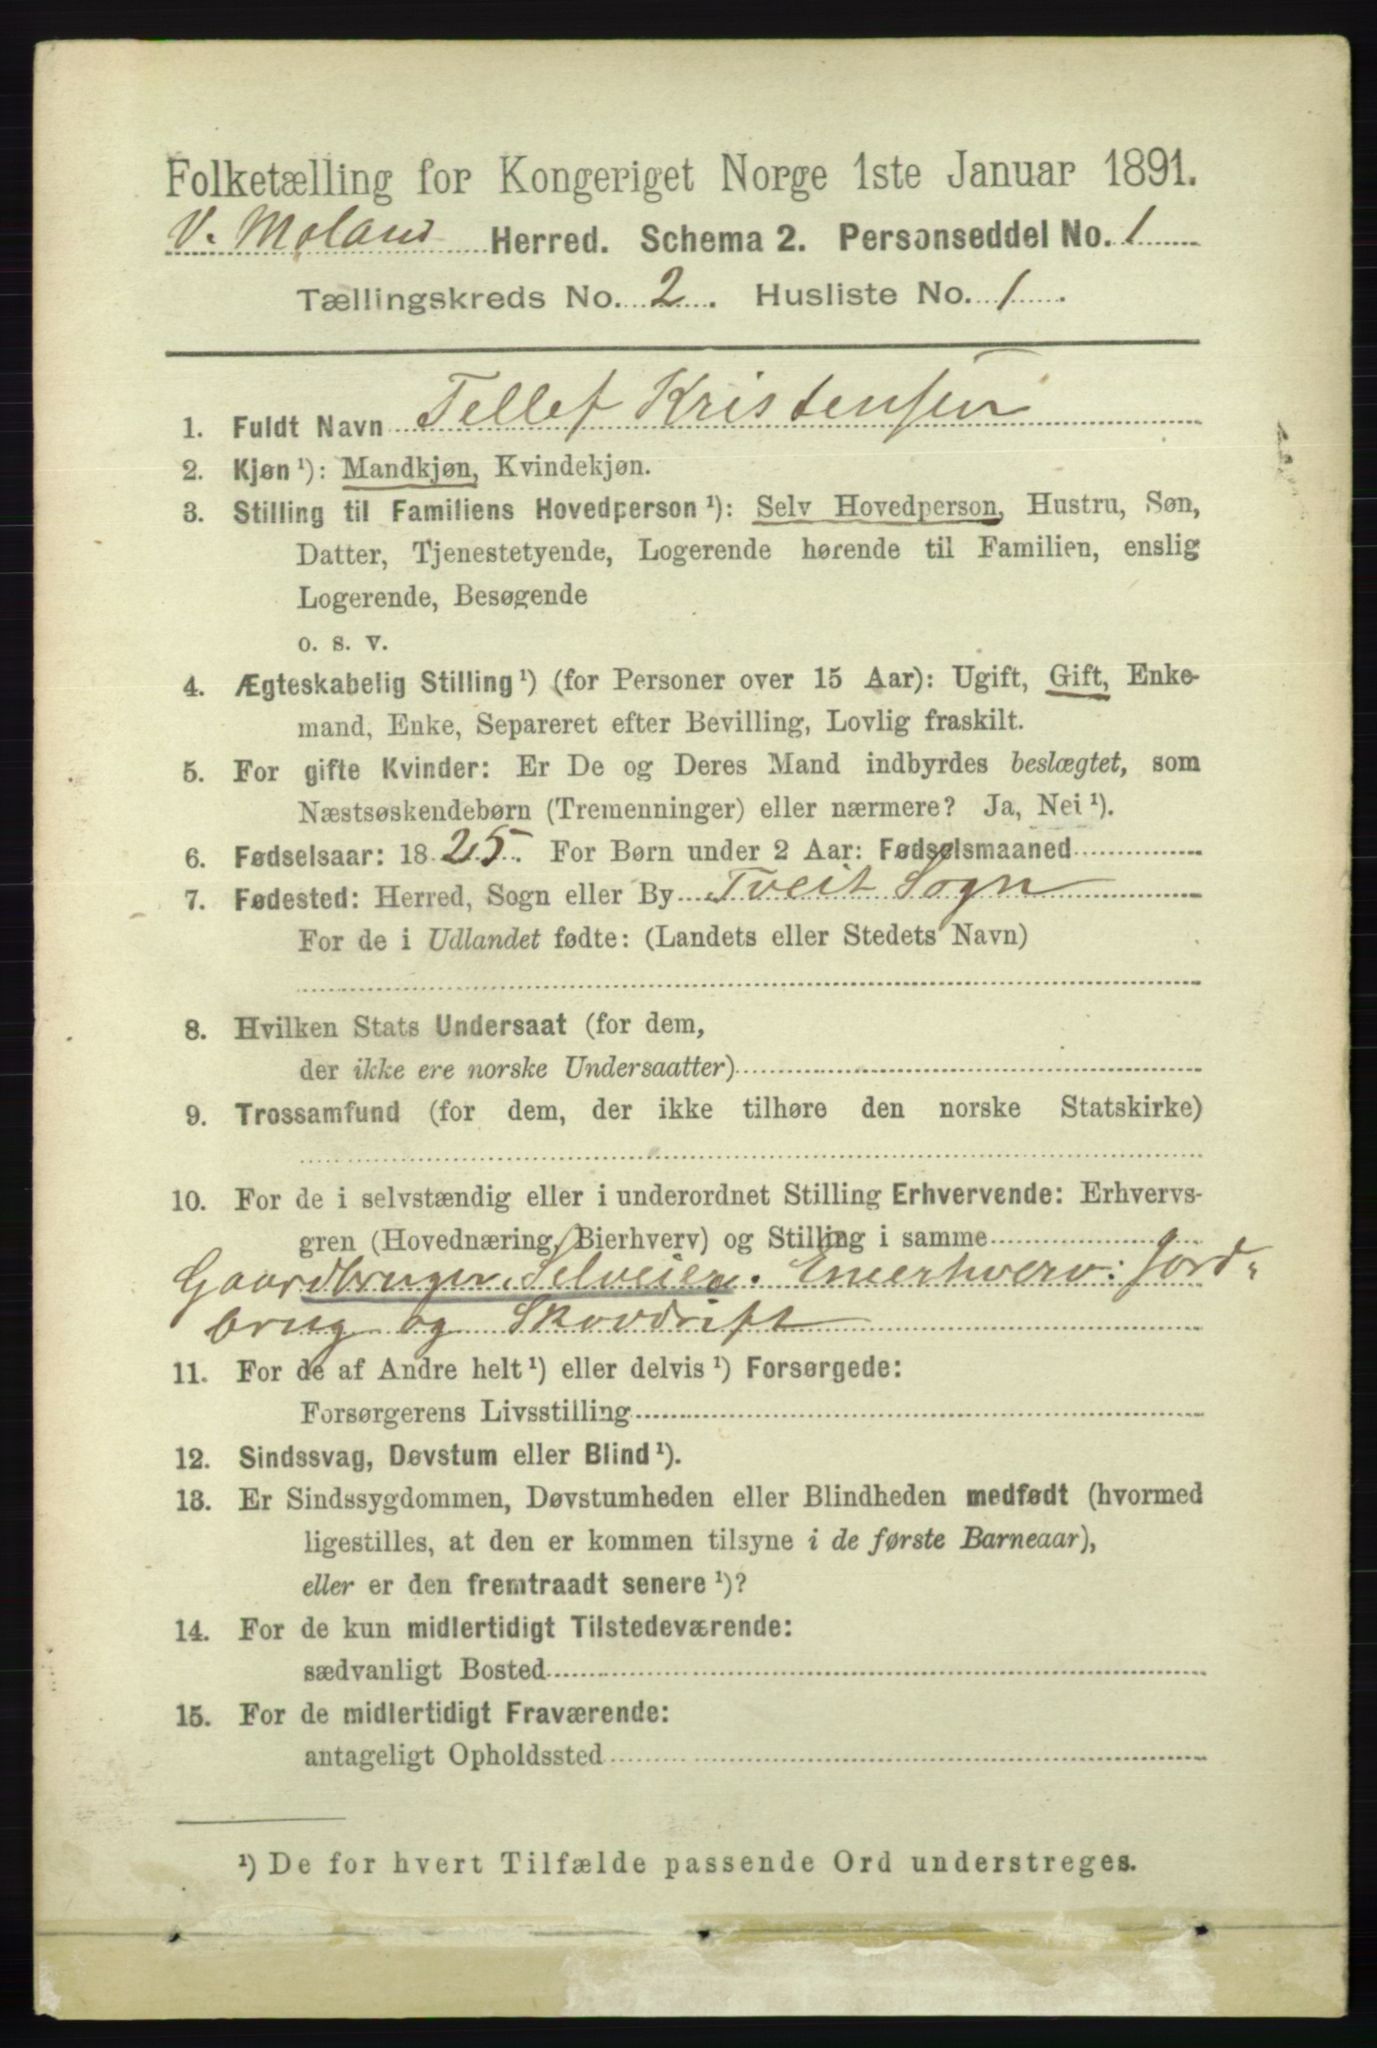 Folketælling for Kongeriget Norge 1ste Januar 1891.
V. Moland Herred. Schema 2. Personseddel No. 1
Tællingskreds No. 2. Husliste No. 1.
1. Fuldt Navn Tellef Kristensen
2. Kjøn ¹): Mandkjøn, Kvindekjøn.
3. Stilling til Familiens Hovedperson ¹): Selv Hovedperson, Hustru, Søn,
Datter, Tjenestetyende, Logerende hørende til Familien, enslig
Logerende, Besøgende
o. s. v.
4. Ægteskabelig Stilling ¹) (for Personer over 15 Aar): Ugift, Gift, Enke-
mand, Enke, Separeret efter Bevilling, Lovlig fraskilt.
5. For gifte Kvinder: Er De og Deres Mand indbyrdes beslægtet, som
Næstsøskendebørn (Tremenninger) eller nærmere? Ja, Nei ¹).
6. Fødselsaar: 1825. For Børn under 2 Aar: Fødselsmaaned
7. Fødested: Herred, Sogn eller By Tveit Sogn
For de i Udlandet fødte: (Landets eller Stedets Navn)
8. Hvilken Stats Undersaat (for dem,
der ikke ere norske Undersaatter)
9. Trossamfund (for dem, der ikke tilhøre den norske Statskirke)
10. For de i selvstændig eller i underordnet Stilling Erhvervende: Erhvervs-
gren (Hovednæring, Bierhverv) og Stilling i samme
Gaardbruger, Selveier. Eneerhverv: Jord-
brug og Skovdrift
11. For de af Andre helt ¹) eller delvis ¹) Forsørgede:
Forsørgerens Livsstilling
12. Sindssvag, Døvstum eller Blind ¹).
13. Er Sindssygdommen, Døvstumheden eller Blindheden medfødt (hvormed
ligestilles, at den er kommen tilsyne i de første Barneaar),
eller er den fremtraadt senere ¹)?
14. For de kun midlertidigt Tilstedeværende:
sædvanligt Bosted
15. For de midlertidigt Fraværende:
antageligt Opholdssted
¹) De for hvert Tilfælde passende Ord understreges.